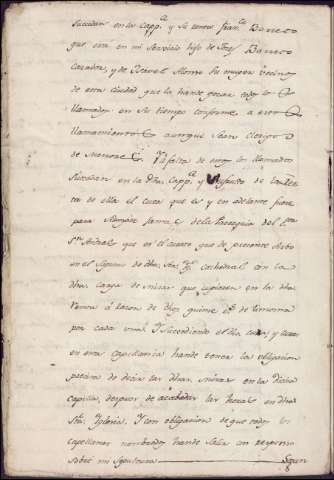 sucedan en la Capp.ª y su tenor Fran.co Barreto
que esta en mi servicio hijo de Joseph Barreto
Casador, y de Ysavel Alonso su muger vecinos
de esta ciudad que la han de gozar todos los
llamados en su tiempo conforme a estos
llamamientos aunque sean Clerigos
de menores. Y a falta de todos los llamados
sucedan en la dha. Capp.ª y
de ella el cura que es y en adelante fuere
para siempre jamas de la Parroquia del
S.n Andres que es el quarto que de presente
en el Sagrario de dha. Sta. Yg.ª Cathedral con la
dha. carga de misas que cupieren en la dha.
renta a razon de diez quime de limosna
por cada una. Y sucediendo el dho. cura, y
en esta capellania han de tener la obligacion
precisa de decir las dhas. misas en la dicha
capilla, despues de acabadas las horas en dha.
Sta. Yglesia. Y con obligacion de que todos los
capellanes nombrados han de salir con responso
sobre mi sepultura